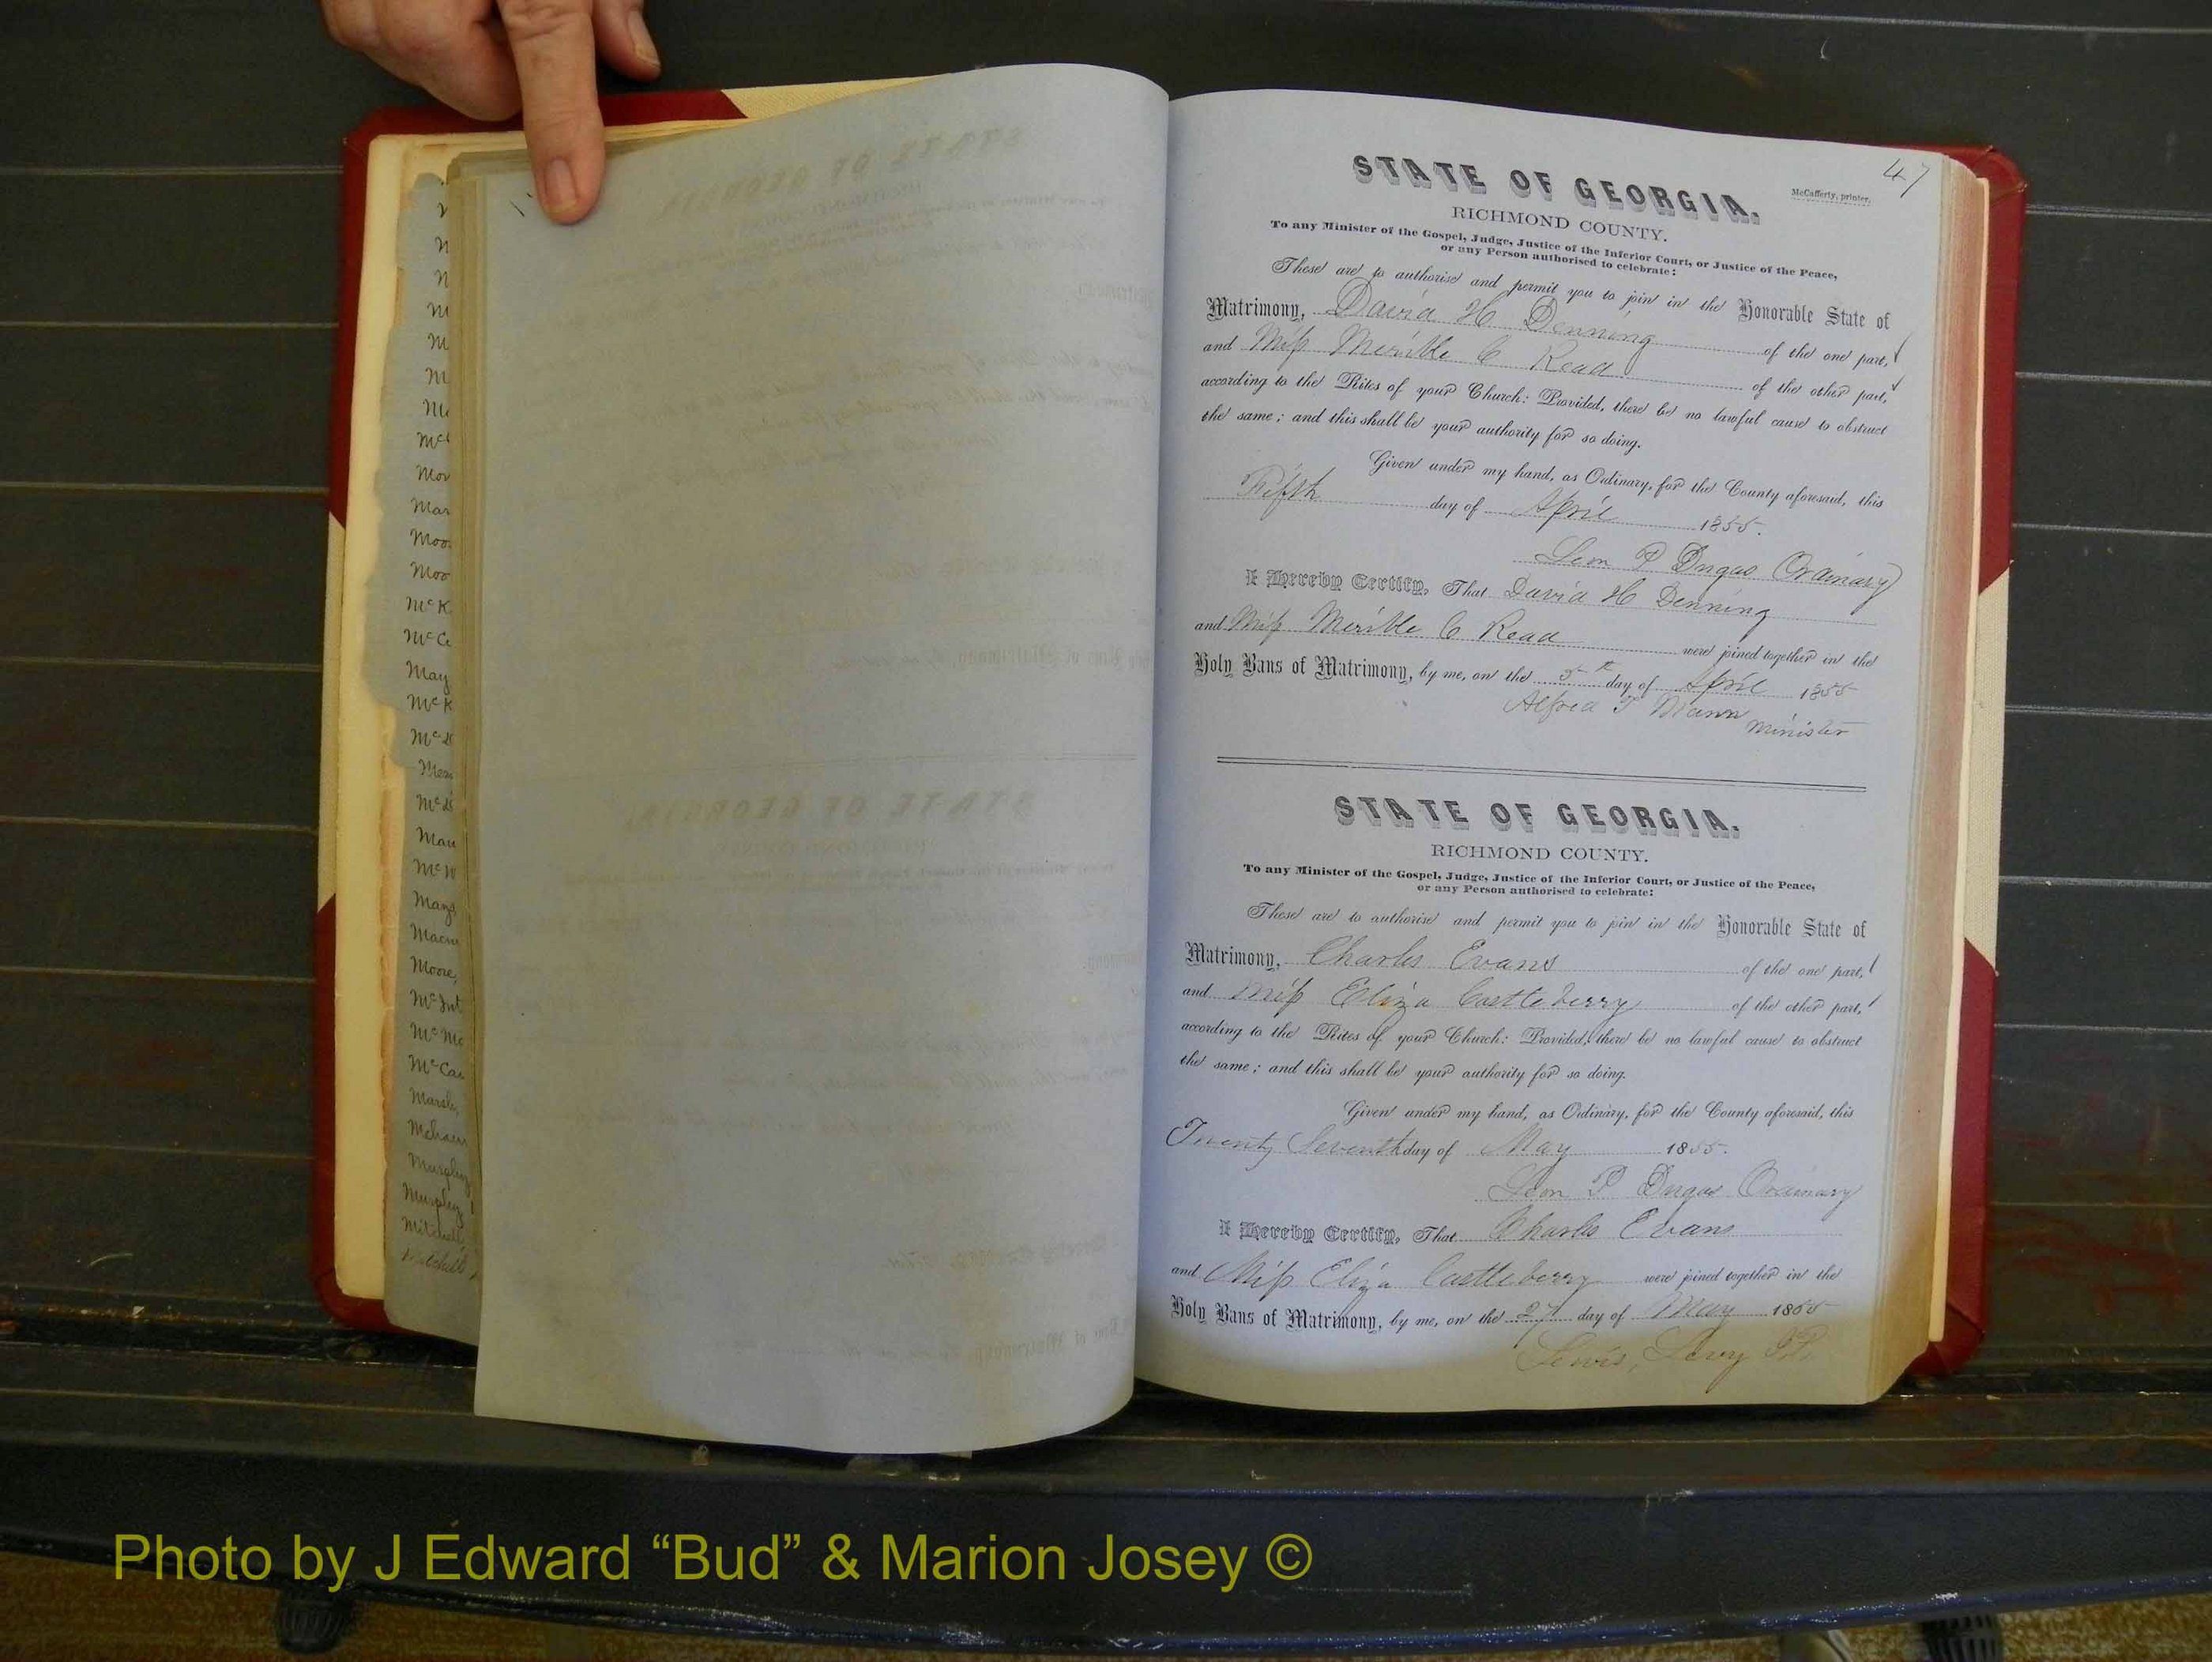 47
STATE OF GEORGIA.
McCafferty, printer.
RICHMOND COUNTY.
To any Minister of the Gospel, Judge, Justice of the Inferior Court, or Justice of the Peace,
or any Person authorised to celebrate:
These are to authorise and permit you to join in the Honorable State of
Matrimony, David H Denning of the one part,
and Miss Merible C Read of the other part,
according to the Rites of your Church: Provided, there be no lawful cause to obstruct
the same; and this shall be your authority for so doing.
Given under my hand, as Ordinary, for the County aforesaid, this
Fifth day of April 1855.
Leon P Dugas Ordinary
I Hereby Certify, That David H Denning
and Miss Merible C Read were joined together in the
Holy Bans of Matrimony, by me, on the 5th day of April 1855
Alfred T Mann
Minister
STATE OF GEORGIA.
RICHMOND COUNTY.
To any Minister of the Gospel, Judge, Justice of the Inferior Court, or Justice of the Peace,
or any Person authorised to celebrate:
These are to authorise and permit you to join in the Honorable State of
Matrimony, Charles Evans of the one part,
and Miss Eliza Castleberry of the other part,
according to the Rites of your Church: Provided, there be no lawful cause to obstruct
the same; and this shall be your authority for so doing.
Given under my hand, as Ordinary, for the County aforesaid, this
Twenty Seventh day of May 1855.
Leon P Dugas Ordinary
I Hereby Certify, That Charles Evans
and Miss Eliza Castleberry were joined together in the
Holy Bans of Matrimony, by me, on the 27 day of May 1855
Lewis, Levy J.P.
Photo by J Edward “Bud” & Marion Josey ©